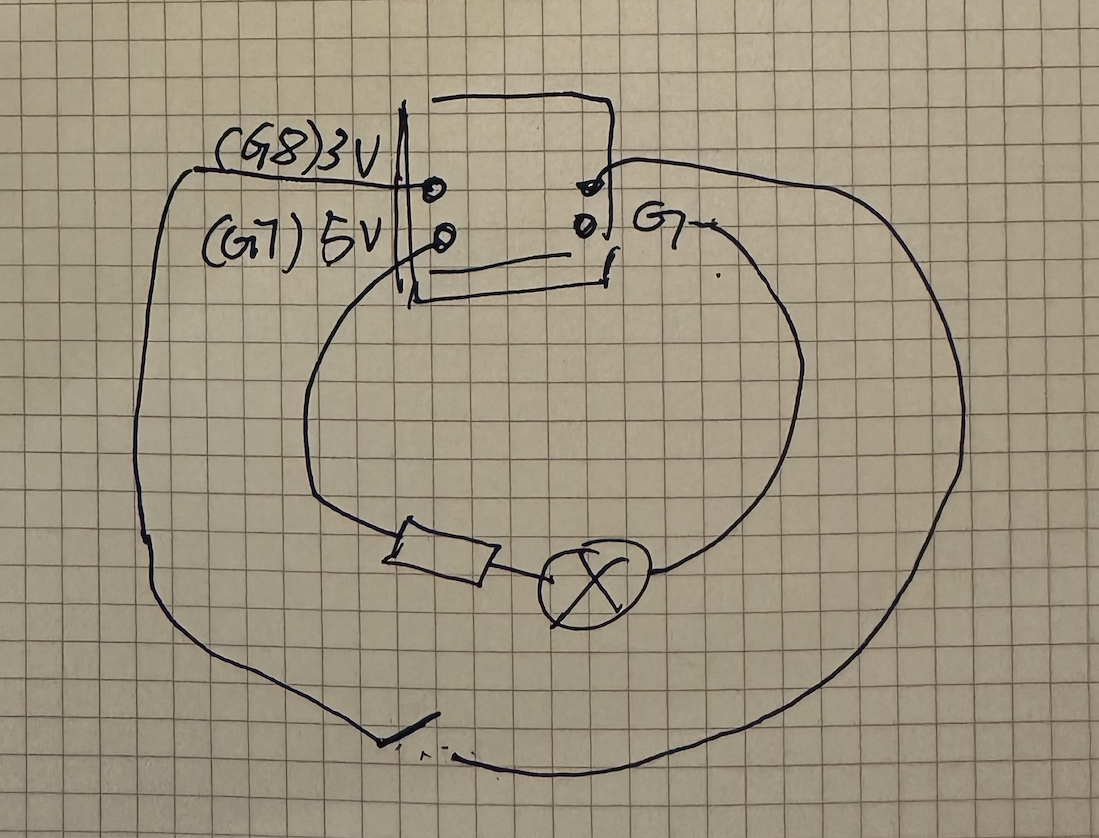 (G8) 3V
(G7) 5V
G7